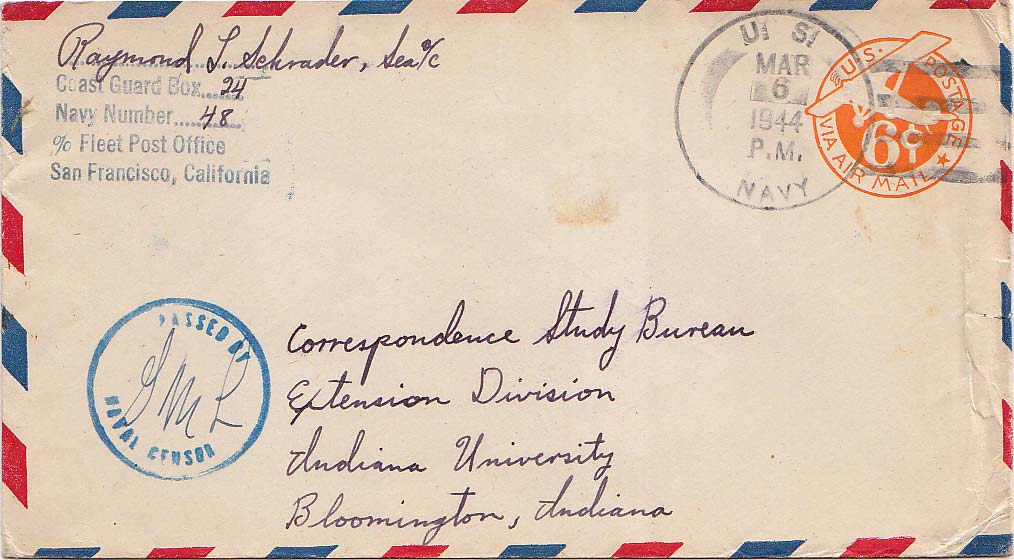 Raymond L. Schrader, Sea 2/c
Coast Guard Box......24
Navy Number.....48
c/o Fleet Post Office
San Francisco, California
U. S.
MAR
6
1944
P.M.
NAVY
U.S. POSTAGE
6¢
VIA AIR MAIL
PASSED BY
NAVAL CENSOR
Correspondence Study Bureau
Extension Division
Indiana University
Bloomington, Indiana